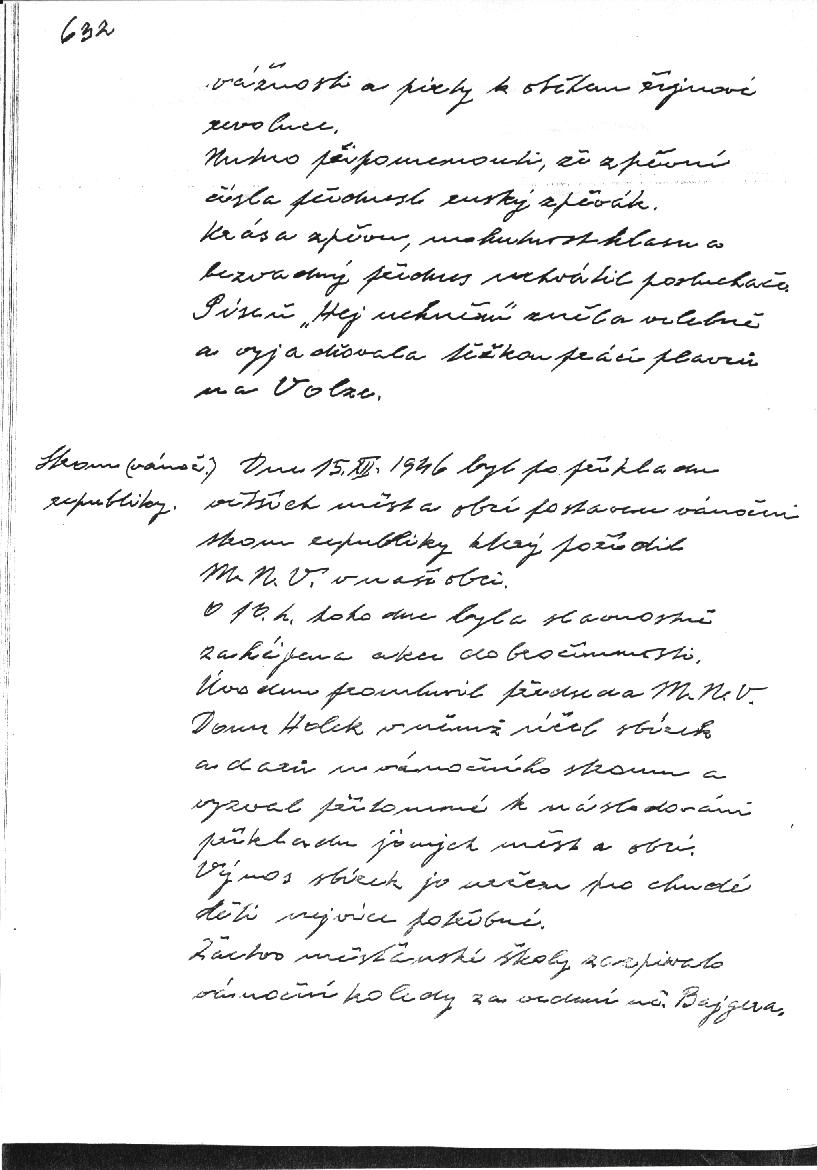 632
vážnosti a piety k obětem říjnové
revoluce.
Nutno připomenouti, že zpěvní
čísla přednesl ruský zpěvák.
Krása zpěvu, mohutnost hlasu a
bezvadný přednes uchvátil posluchače.
Píseň „Hej uchněm" zněla velebně
a vyjadřovala těžkou práci plavců
na Volze.
Strom (vánoč.)
republiky.
Dne 15. XII. 1946 byl po příkladu
větších měst a obcí postaven vánoční
strom republiky který pořídil
M. N. V. v naší obci.
O 10. h. toho dne byla slavnostně
zahájena akce dobročinnosti.
Úvodem promluvil předseda M. N. V.
Dom. Holek v němž účel sbírek
a darů u vánočního stromu a
vyzval přítomné k následování
příkladu jiných měst a obcí.
Výnos sbírek je určen pro chudé
děti nejvíce potřebné.
Žactvo měšťanské školy zazpívalo
vánoční koledy za vedení uč. Bajgera.